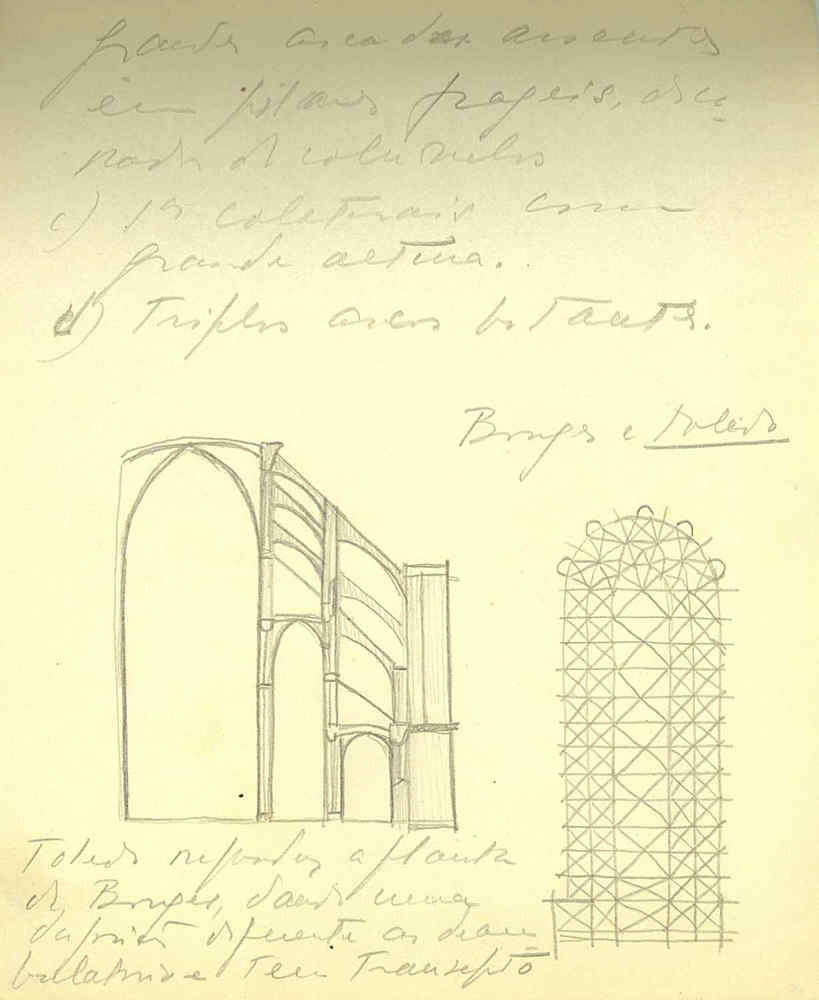 grandes arcadas assentes
em pilares frageis,
de colunelos
c) 1os colaterais com
grande altura.
d) Triplos arcos botantes.
Bruges e Toledo
Toledo reproduz a planta
de Bruges, dando uma
diferente ao deam-
bulatorio e tem Transepto